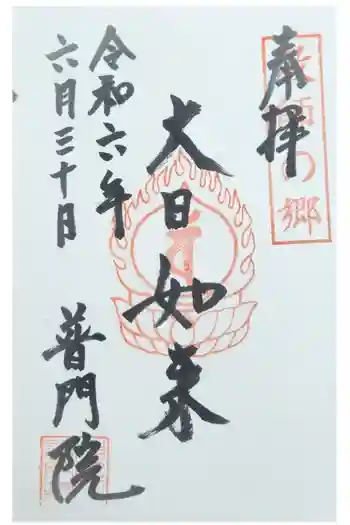 奉拝
の郷
大日如来
令和六年
六月三十日
普門院